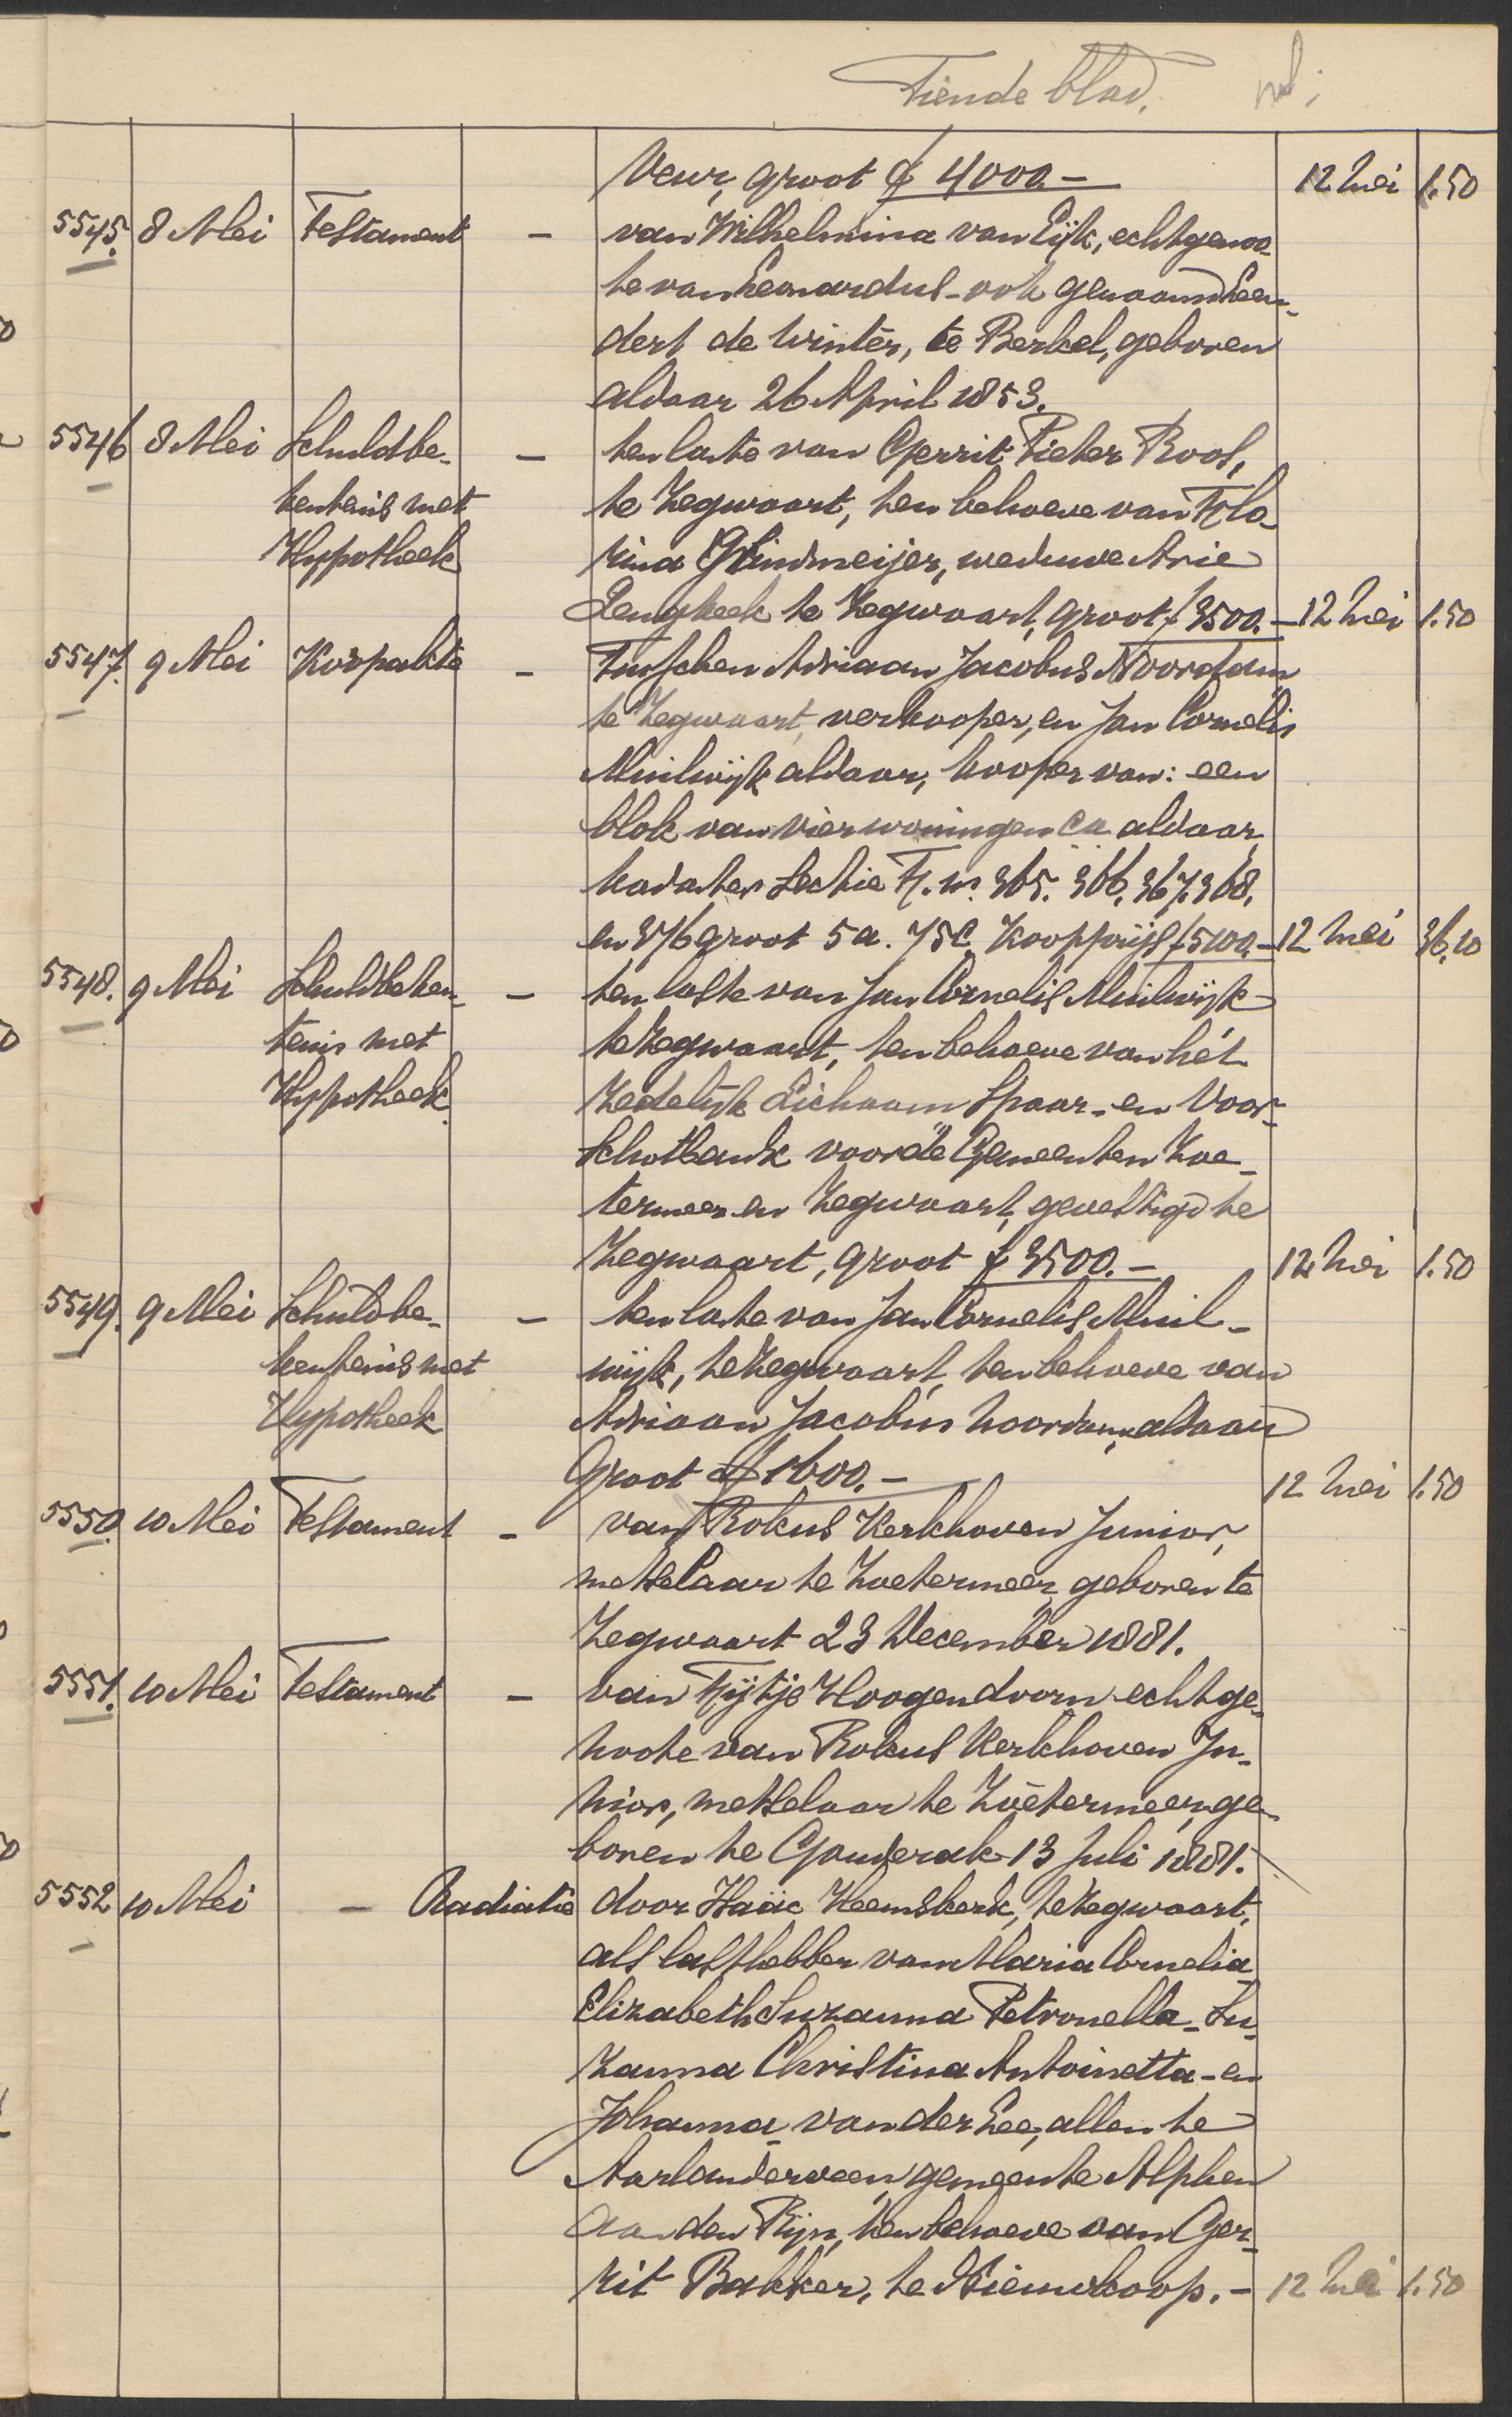 Tiende blad.
Veur, groot f 4000.- 12 Mei 1.50
5545. 8 Mei Testament - van Wilhelmina van Eijk, echtgenoo-
te van Leonardus - ook genaamd Leen-
dert de Winter, te Berkel, geboren
aldaar 26 April 1853.
5546 8 Mei Schuldbe- - ten laste van Gerrit Pieter Roos,
kentenis met te Zegwaart, ten behoeve van Kla-
Hypotheek rina Windmeijer, weduwe Arie
Lengkeek te Zegwaart, groot f 3500.- 12 Mei 1.50
5547. 9 Mei Koopakte - Tusschen Adriaan Jacobus Noordam
te Zegwaart, verkooper, en Jan Cornelis
Muilwijk aldaar, kooper van: een
blok van vier woningen ca aldaar,
kadaster Sectie F. nr. 365. 366, 367, 368,
en 376 groot 5 a. 75 c. Koopprijs f 5100.- 12 Mei 36,10
5548. 9 Mei Schuldbeken- - ten laste van Jan Cornelis Muilwijk
tenis met te Zegwaart, ten behoeve van het
Hypotheek Zedelijk Lichaam Spaar- en Voor-
schotbank voor de Gemeenten Zoe-
termeer en Zegwaart, gevestigd te
Zegwaart, groot f 3500.- 12 Mei 1.50
5549. 9 Mei Schuldbe- - ten laste van Jan Cornelis Muil-
kentenis met wijk, te Zegwaart, ten behoeve van
Hypotheek Adriaan Jacobus Noordam, aldaar
Groot f 1600.- 12 Mei 1.50
5550. 10 Mei Testament - van Rokus Kerkhoven Junior,
metselaar te Zoetermeer, geboren te
Zegwaart 23 December 1881.
5551. 10 Mei Testament - van Fijtje Hoogendoorn echtge-
noote van Rokus Kerkhoven Ju-
nior, metselaar te Zoetermeer, ge-
boren te Gouderak 13 Juli 1881.
5552 10 Mei - Radiatie door Isaäc Heemskerk, te Zegwaart,
als lasthebber van Maria Cornelia
Elizabeth Suzanna Petronella - Su-
zanna Christina Antoinetta - en
Johanna van der Lee, allen te
Aarlanderveen, gemeente Alphen
aan den Rijn, ten behoeve van Ger-
rit Bakker, te Nieuwkoop. - 12 Mei 1.50